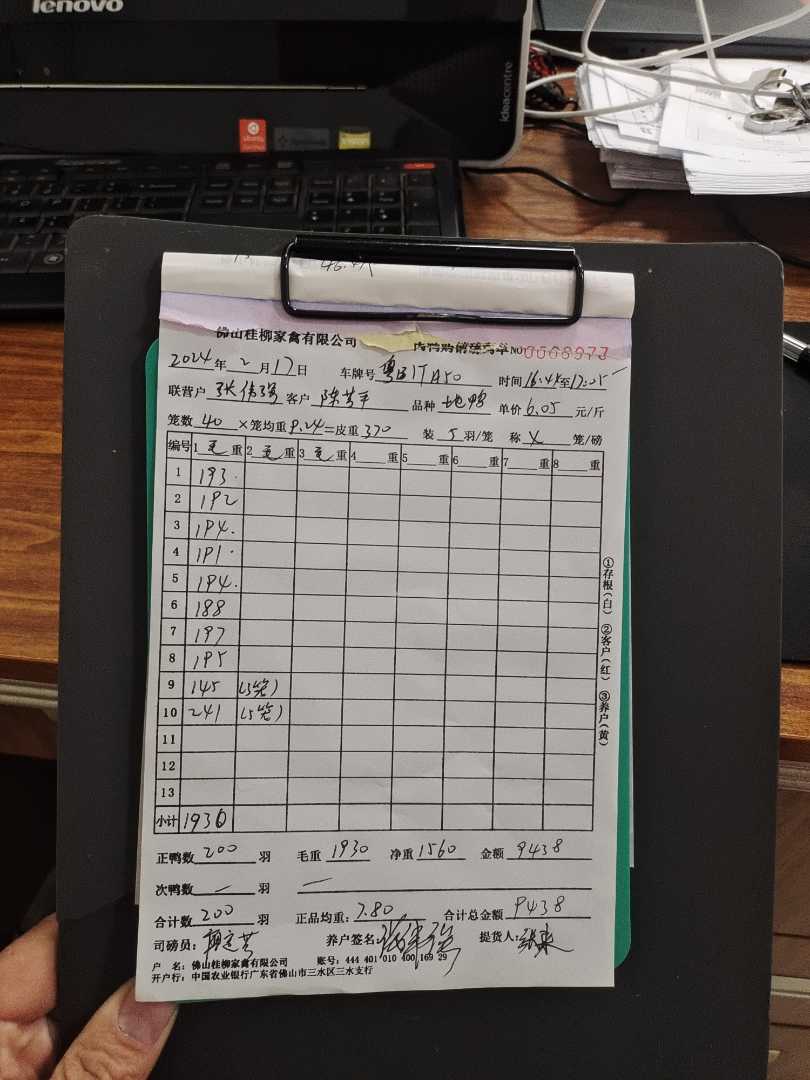 lenovo
ideacentre
ubuntu
佛山桂柳家禽有限公司 肉鸭购销 单 NO 0068973
2024年2月17日 车牌号 时间16:45至17:05
联营户 张伟强 客户 品种 地鸭 单价6.05元/斤
笼数40×笼均重9.24=皮重370 装5羽/笼 称4笼/磅
编号 1毛重 2毛重 3毛重 4 重 5 重 6 重 7 重 8 重
1 193
2 192
3 194
4 191
5 194
6 188
7 197
8 195
9 145 (3笼)
10 241 (5笼)
11
12
13
小计 1930
①存根(白) ②客户(红) ③养户(黄)
正鸭数 200 羽 毛重 1930 净重 1560 金额 9438
次鸭数 — 羽 —
合计数 200 羽 正品均重: 7.80 合计总金额 9438
司磅员: 养户签名: 张伟强 提货人:
户 名: 佛山桂柳家禽有限公司 账号: 444 401 010 400 169 29
开户行: 中国农业银行广东省佛山市三水区三水支行